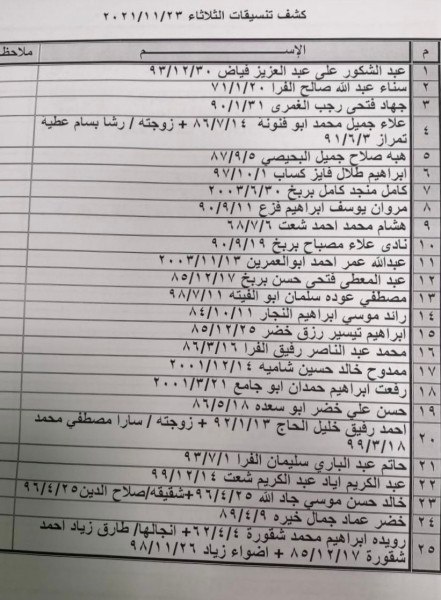 كشف تنسيقات الثلاثاء ٢٠٢١/١١/٢٣
م الإســـم ملاحظ
١ عبد الشكور على عبد العزيز فياض ٩٣/١٢/٣٠
٢ سناء عبد الله صالح الفرا ٧١/١/٢٠
٣ جهاد فتحى رجب الغمرى ٩٠/١/٣١
٤ علاء جميل محمد ابو فنونة ٨٦/٧/١٤ + زوجته / رشا بسام عطيه
تمراز ٩١/٦/٣
٥ هبه صلاح جميل البحيصي ٨٧/٩/٥
٦ ابراهيم طلال فايز كساب ٩١/٧/١
٧ كامل منجد كامل بربخ ٢٠٠٣/٦/٣٠
٨ مروان يوسف ابراهيم قزع ٩٠/٩/١١
٩ هشام محمد احمد شعت ٦٨/٧/٦
١٠ نادى علاء مصباح بربخ ٩٠/٩/١٩
١١ عبدالله عمر احمد ابوالعمرين ٢٠٠٣/١١/١٣
١٢ عبد المعطي فتحي حسن بربخ ٨٥/١٢/١٧
١٣ مصطفي عوده سلمان ابو الفيته ٩٨/٧/١١
١٤ رائد موسي ابراهيم النجار ٨٤/١٠/١١
١٥ ابراهيم تيسير رزق خضر ٨٥/١٢/٢٥
١٦ محمد عبد الناصر رفيق الفرا ٨٦/٣/١٦
١٧ ممدوح خالد حسين شاميه ٢٠٠١/١٢/١٤
١٨ رفعت ابراهيم حمدان ابو جامع ٢٠٠١/٣/٢١
١٩ حسن علي خضر ابو سعده ٨٦/٥/١٨
٢٠ احمد رفيق خليل الحاج ٩٢/١/١٣ + زوجته / سارا مصطفي محمد
٩٩/٣/١٨
٢١ حاتم عبد الباري سليمان الفرا ٩٣/٧/١
٢٢ عبد الكريم اياد عبد الكريم شعت ٩٩/١٢/١٤
٢٣ خالد حسن موسي جاد الله ٩٦/٤/٢٥+شقيقه/صلاح الدين٩٦/٤/٢٥
٢٤ خضر عماد جمال خيره ٨٩/٤/٩
٢٥ رويده ابراهيم محمد شقورة ٦٢/٤/٤+ انجالها/ طارق زياد احمد
شقورة ٨٥/١٢/١٧ + اضواء زياد ٩٨/١١/٢٦